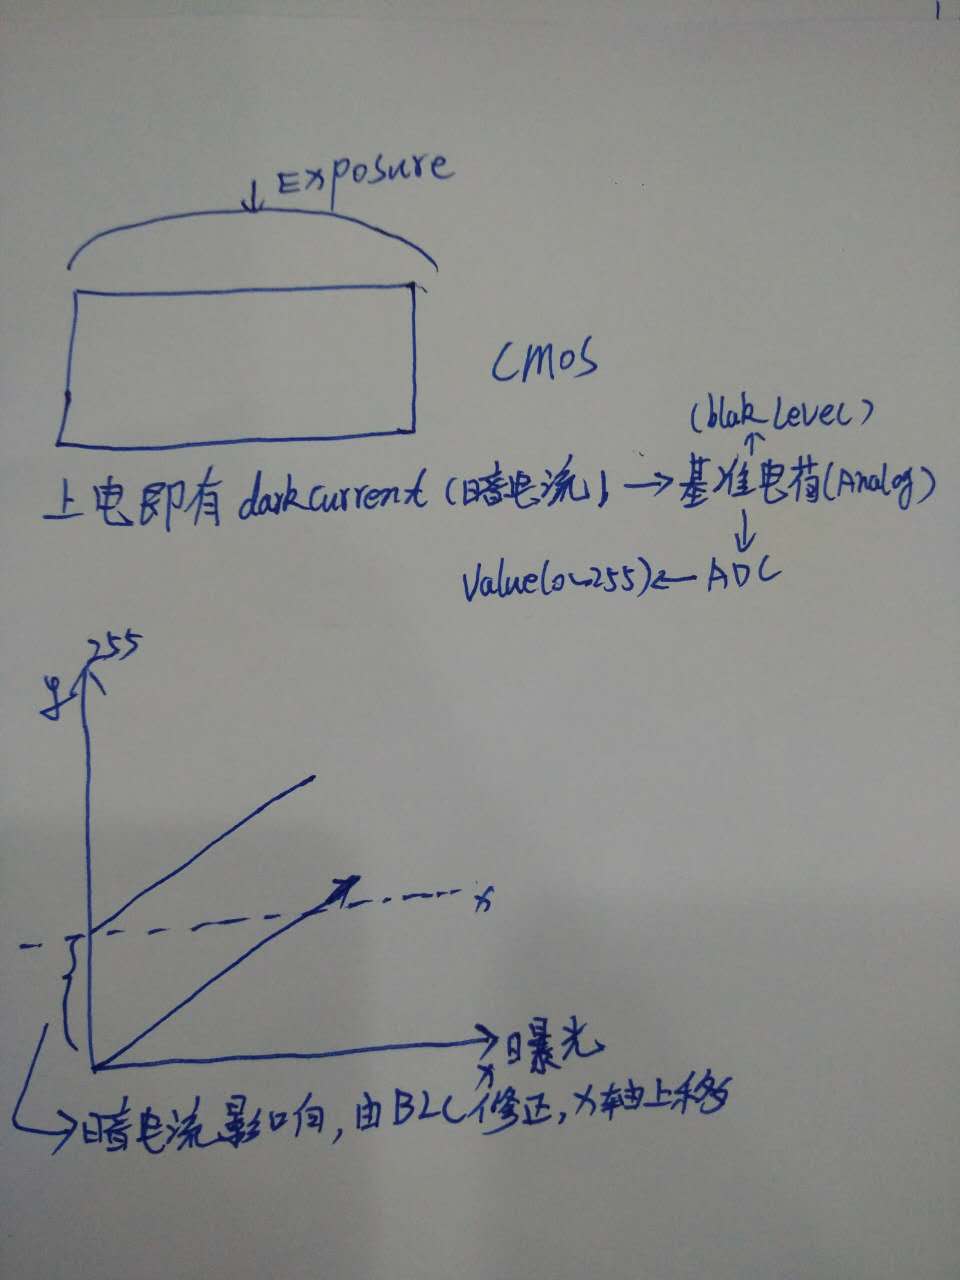 Exposure
CMOS
(blak Level)
上电即有 dark current (暗电流) → 基准电荷(Analog)
Value(0~255) ← ADC
255
y
x
曝光
x
暗电流影响, 由BLC修正, x轴上移